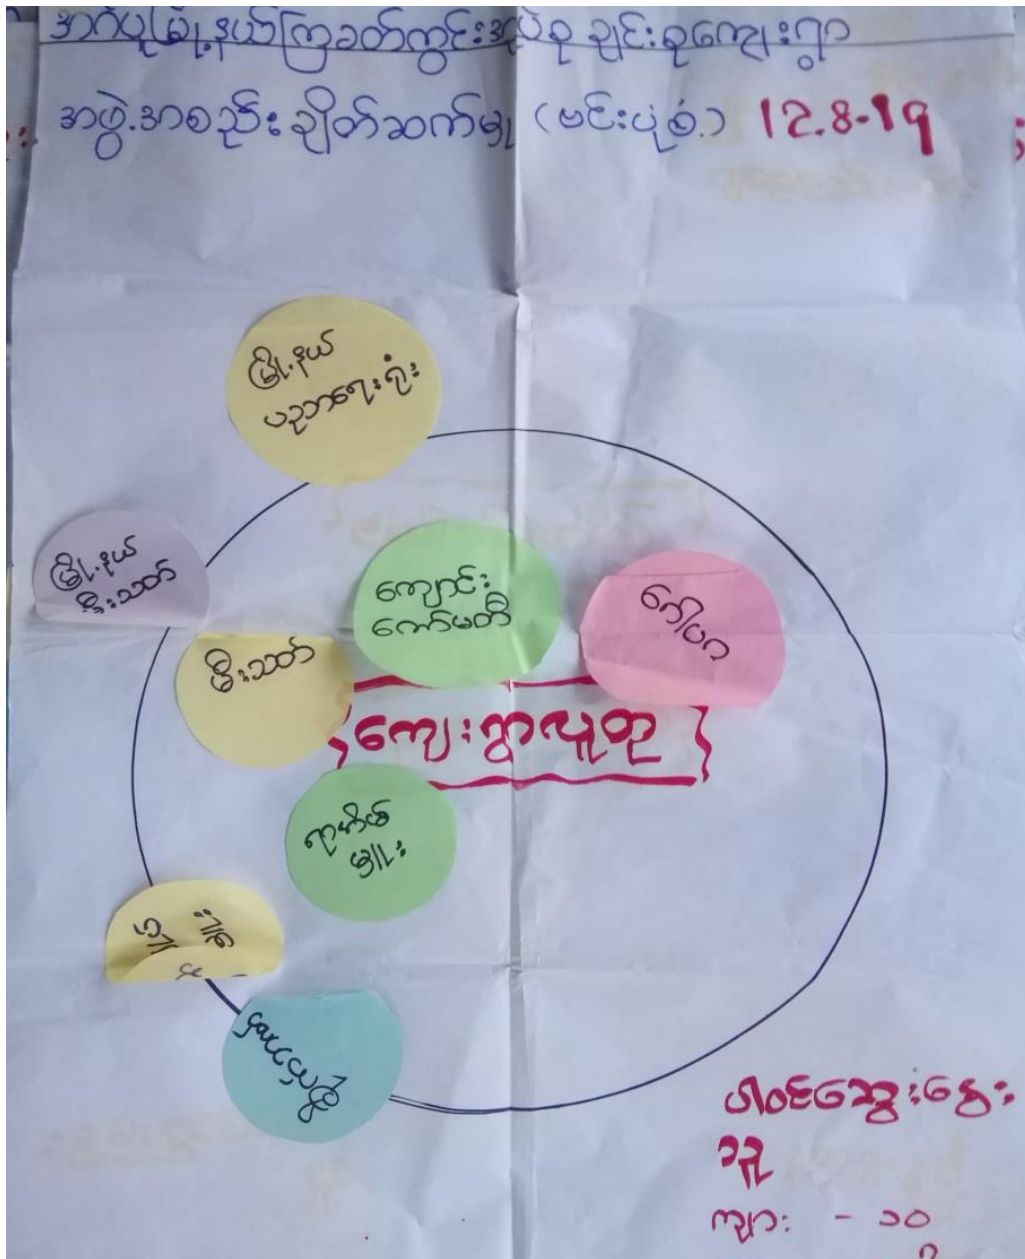 အင်္ဂပူမြို့နယ်ကြခတ်ကွင်းအုပ်စု ချင်းစုကျေးရွာ
အဖွဲ့အစည်းချိတ်ဆက်မှု (ဗင်းပုံစံ) 12.8.19
မြို့နယ်
ပညာရေးရုံး
မြို့နယ်
မီးသတ်
ကျောင်း
ကော်မတီ
ဂေါပက
မီးသတ်
ကျေးရွာလူထု
ရာအိမ်
မှူး
ပါဝင်ဆွေးနွေး
သူ
ကျား - ၁၀